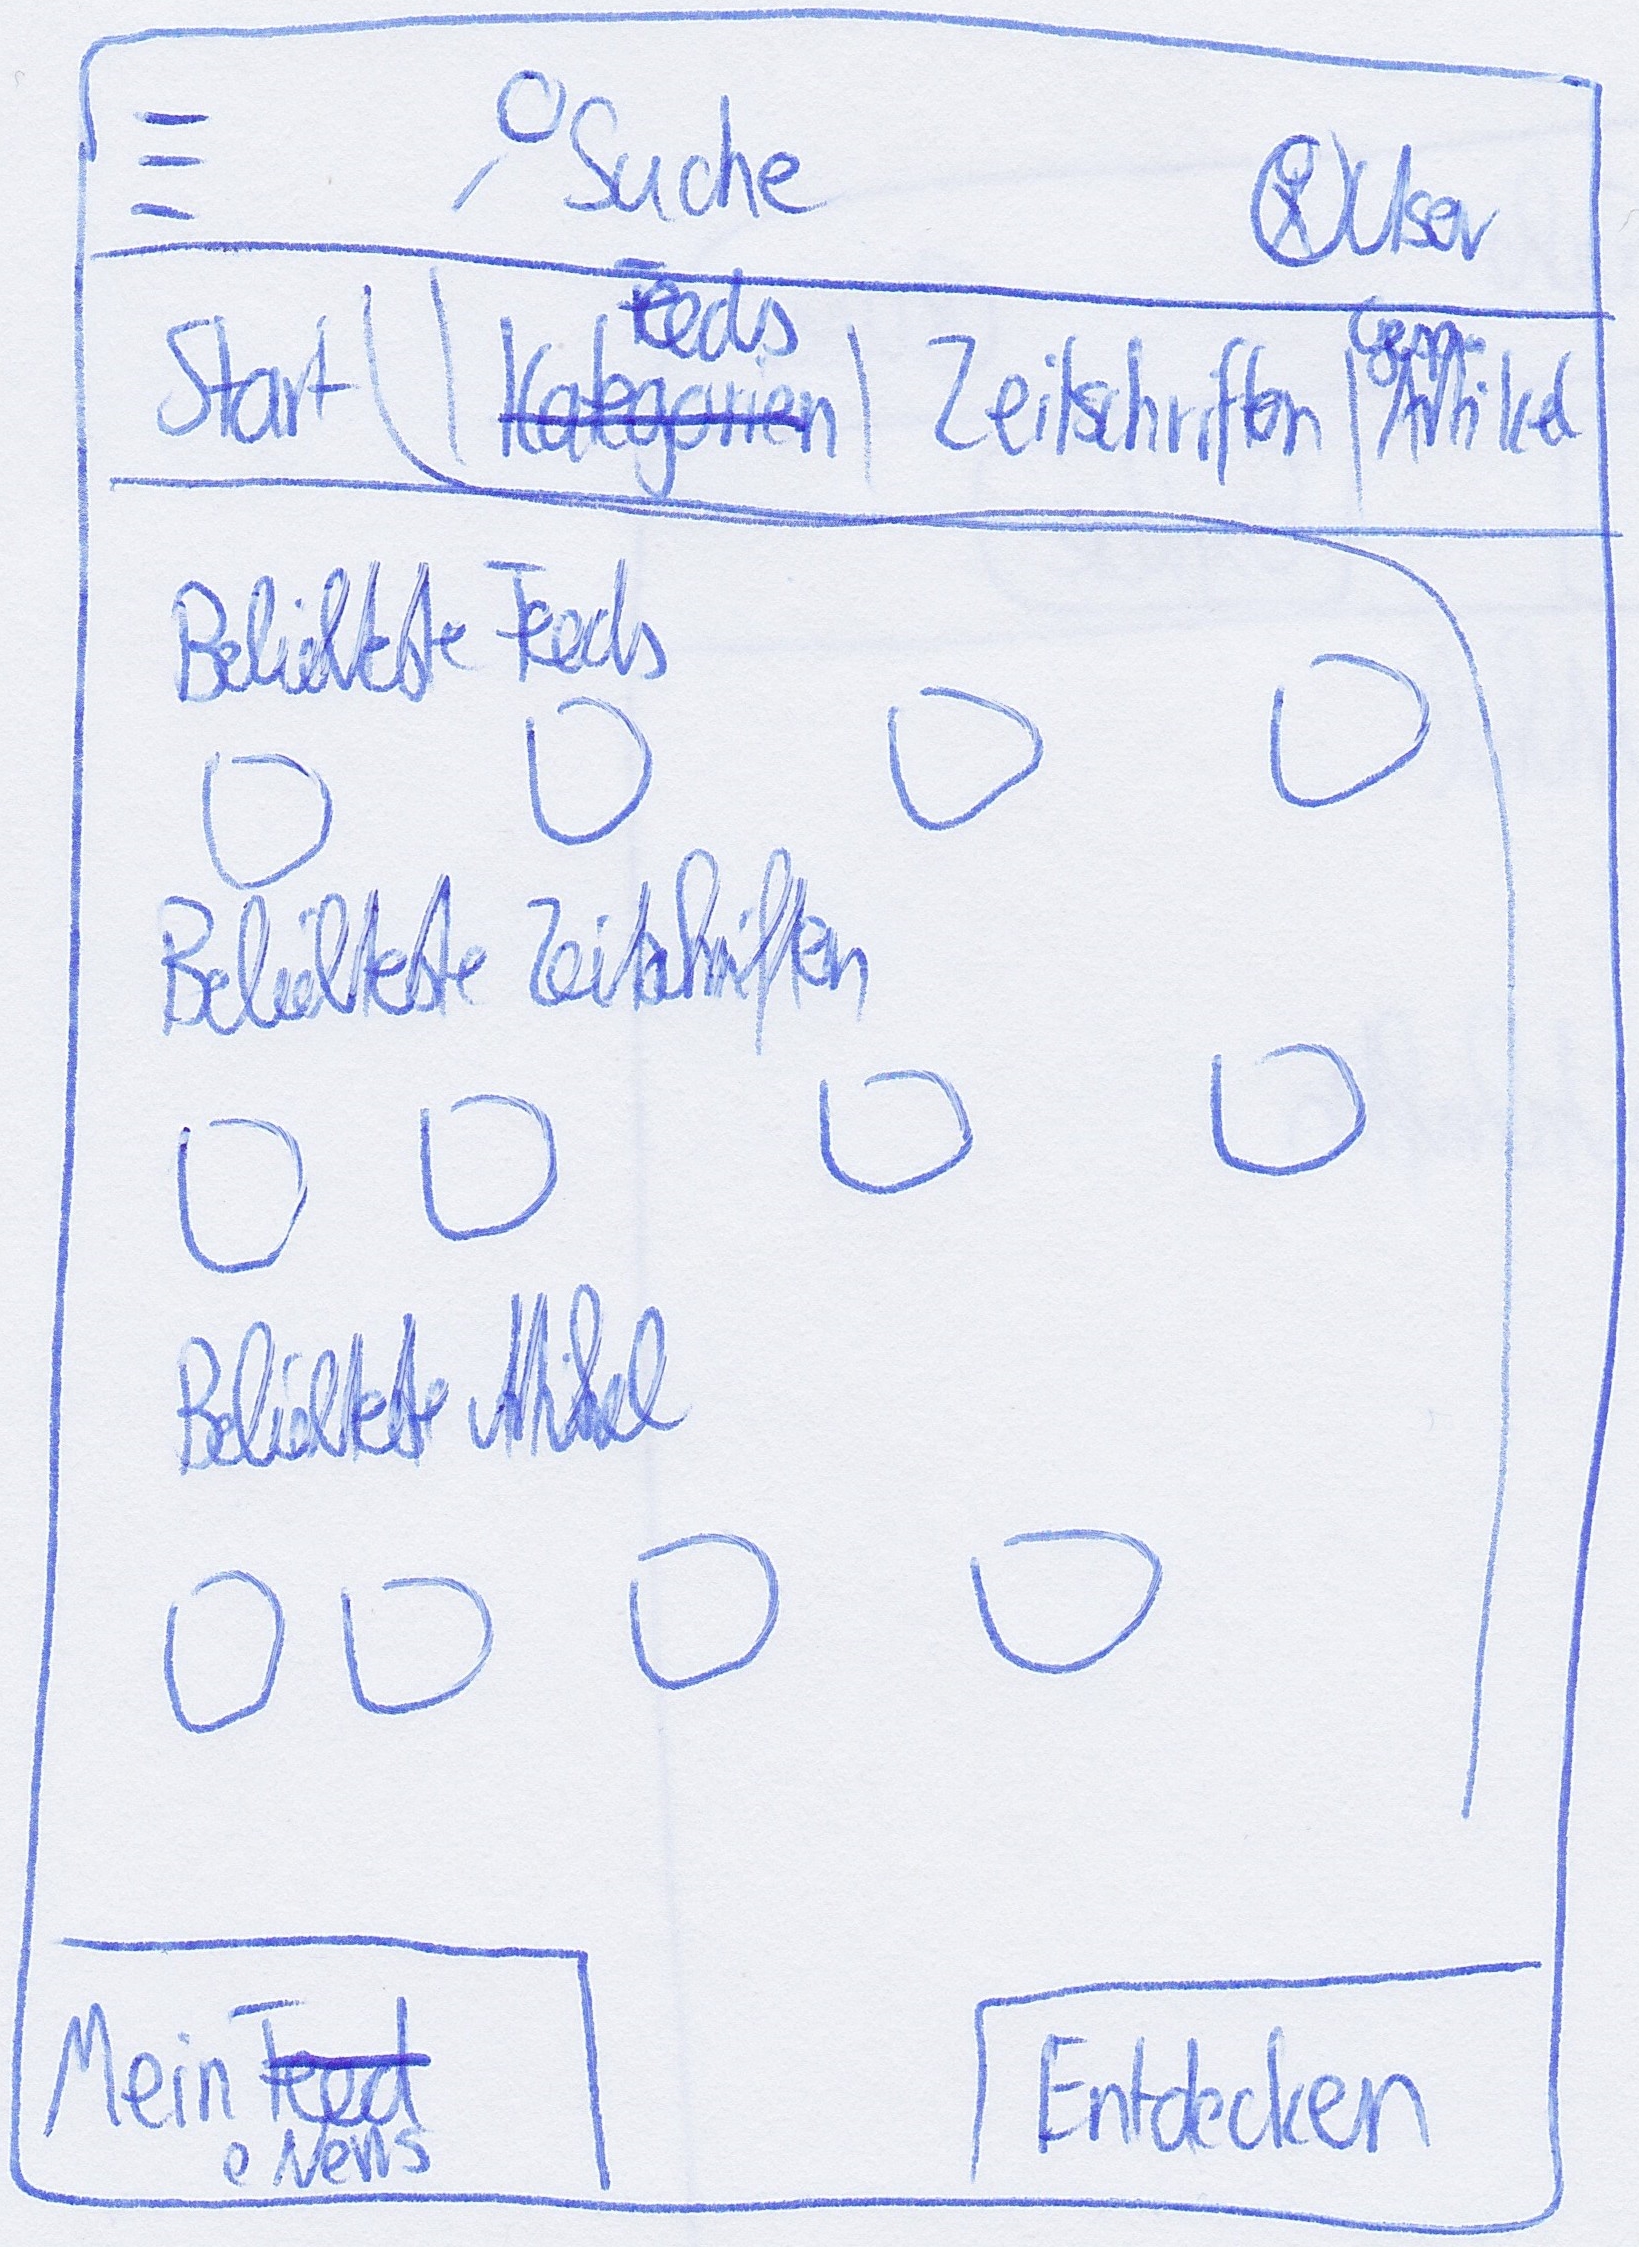 Suche
User
Feeds
Start | Kategorien | Zeitschriften | Artikel
Beliebteste Feeds
Beliebteste Zeitschriften
Beliebteste Artikel
Mein Feed
e News
Entdecken